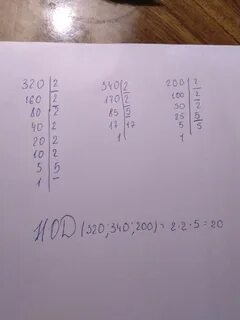 320 | 2    340 | 2    200 | 2
160 | 2    170 | 2    100 | 2
80 | 2    85 | 5    50 | 2
40 | 2    17 | 17    25 | 5
20 | 2    1    5 | 5
10 | 2    1
5 | 5
1
НОD (320; 340; 200) = 2·2·5 = 20